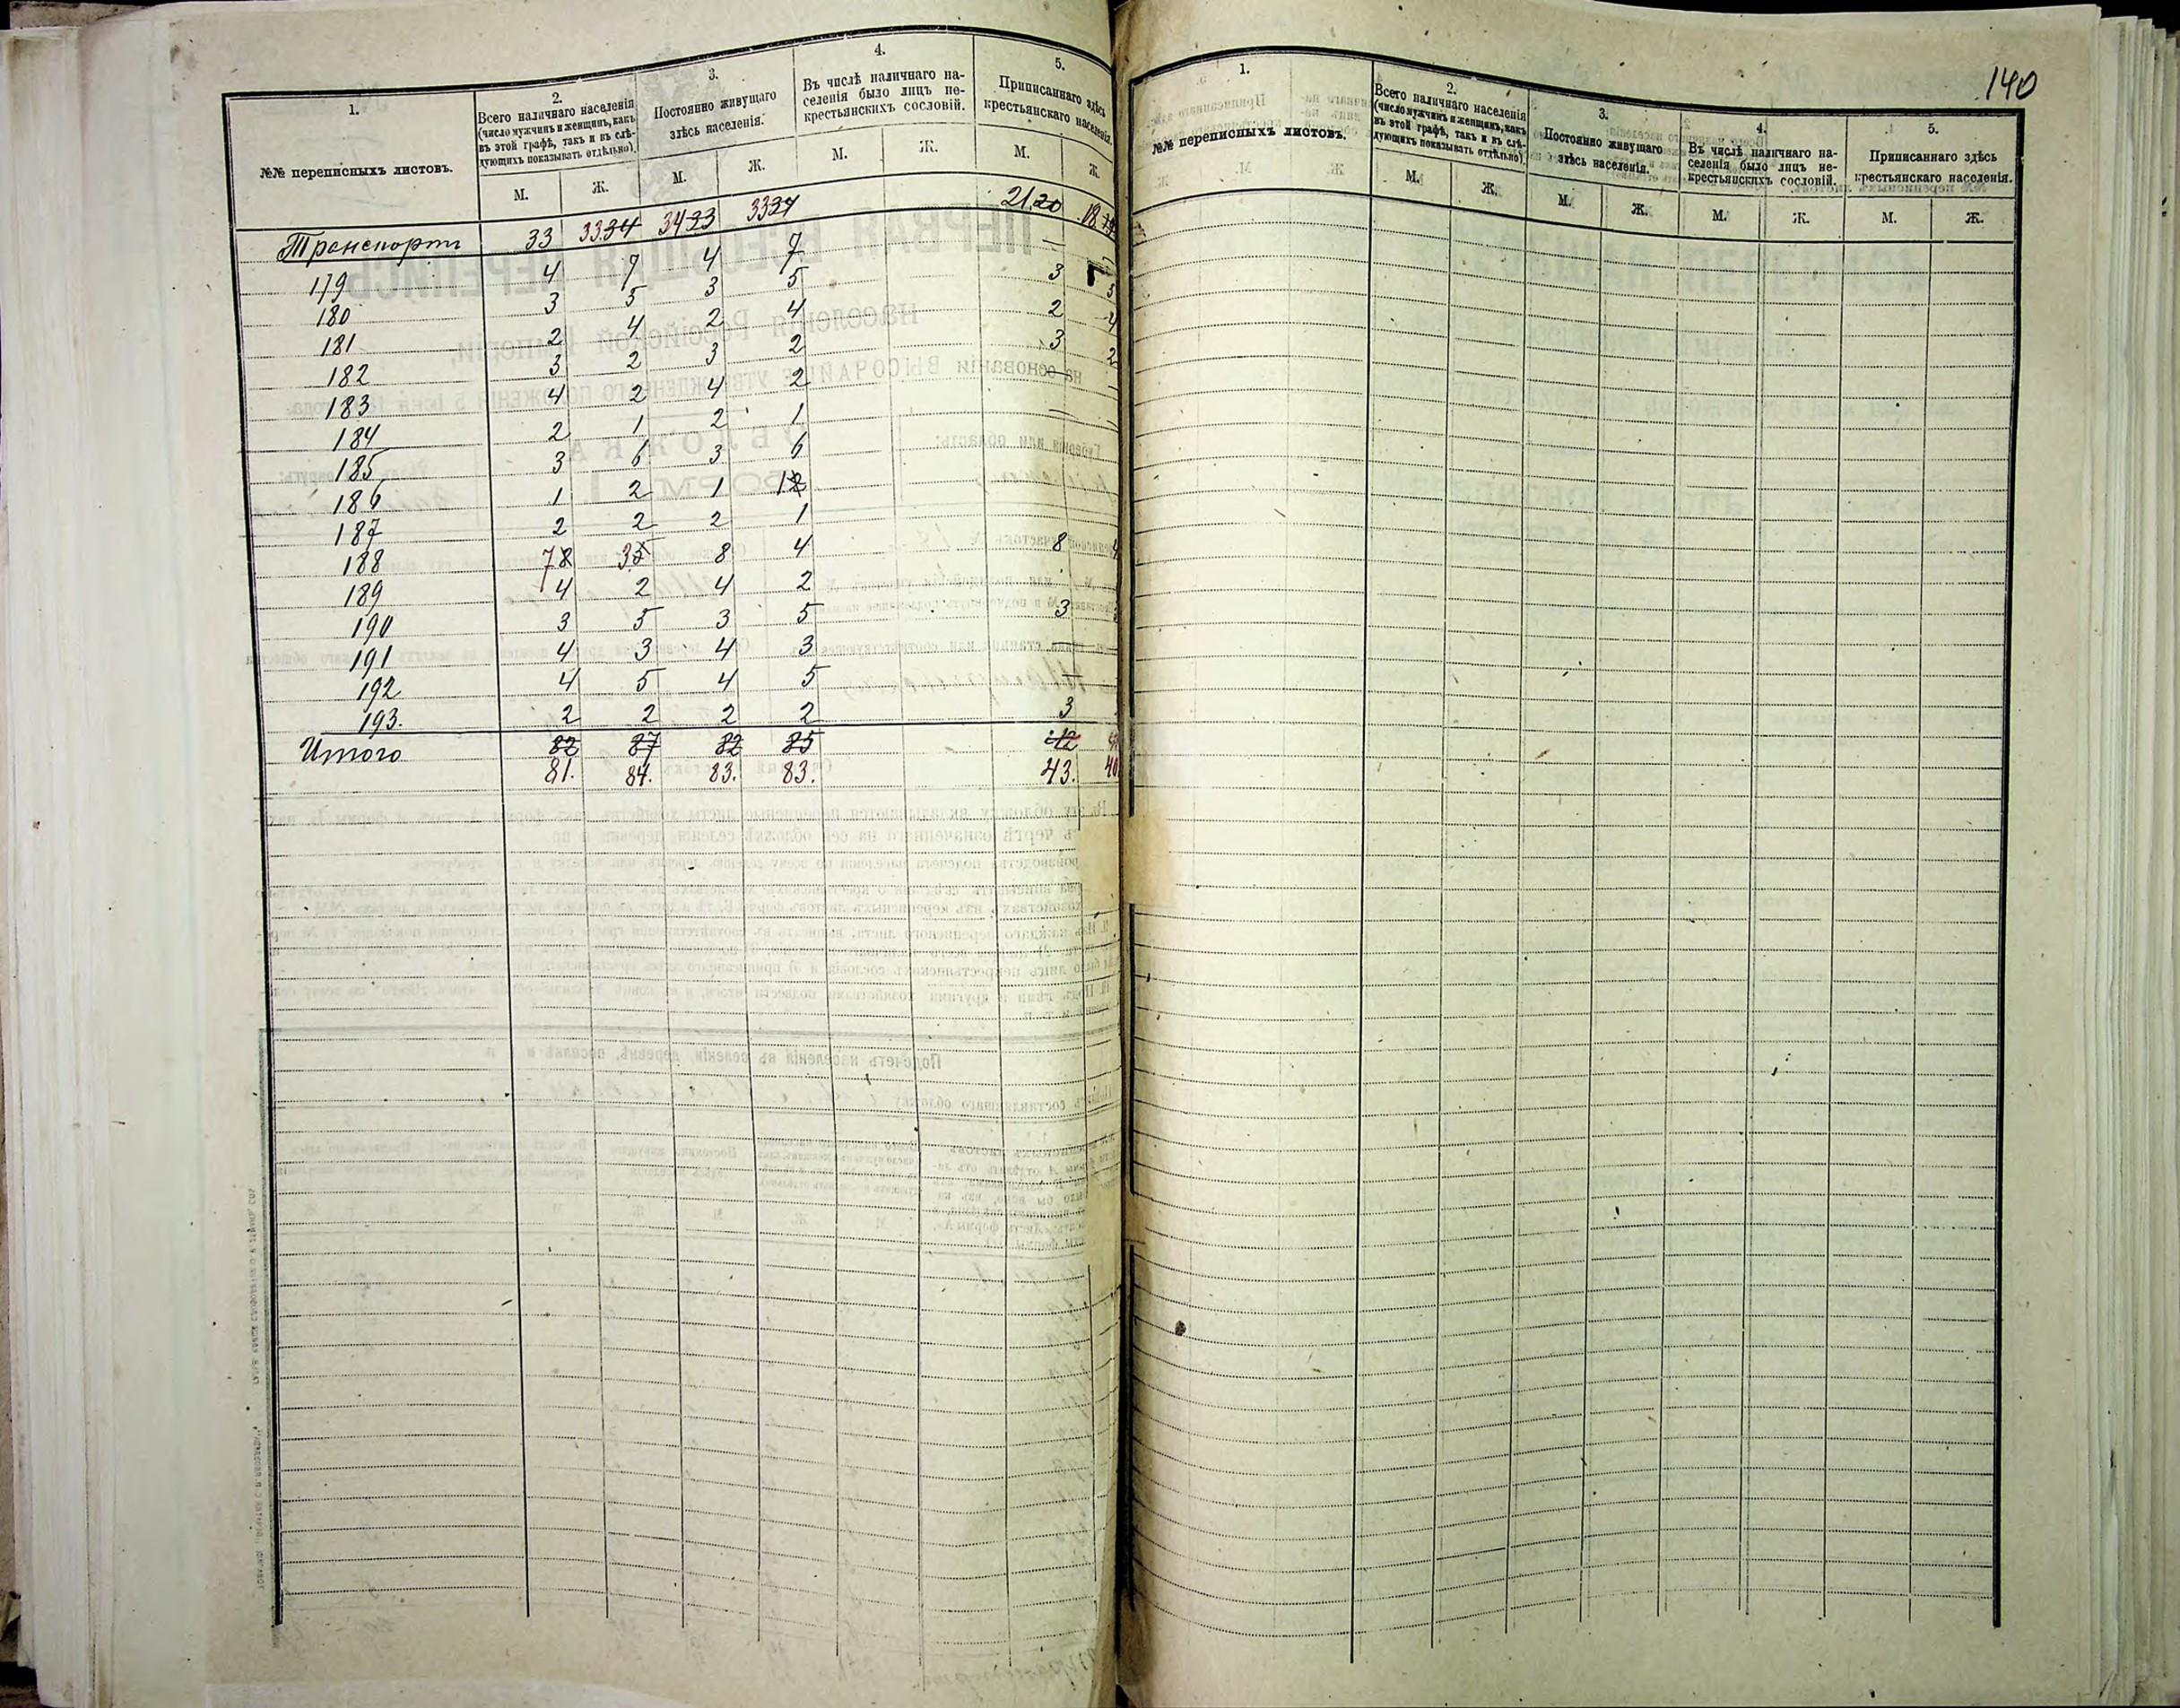 1. 2. 3. 4. 5.
№№ переписныхъ листовъ.
Всего наличнаго населенія
(число мужчинъ и женщинъ, какъ
въ этой графѣ, такъ и въ слѣ-
дующихъ показывать отдѣльно).
Постоянно живущаго
здѣсь населенія.
Въ числѣ наличнаго на-
селенія было лицъ не-
крестьянскихъ сословій.
Приписаннаго здѣсь
крестьянскаго населенія.
М. Ж. М. Ж. М. Ж. М. Ж.
Транспортъ 33 33 34 34 33 33 34 21 20 18
179 4 7 4 7 —
180 3 5 3 5 3 5
181 2 4 2 4 2 4
182 3 2 3 2 3 2
183 4 2 4 2
184 2 1 2 1 —
185 3 6 3 6
186 1 2 1 1 2
187 2 2 2 1
188 7 8 3 5 8 4 8 4
189 4 2 4 2
190 3 5 3 5 3
191 4 3 4 3 —
192 4 5 4 5
193. 2 2 2 2 3
Итого 82 87 82 85 42
81. 84. 83. 83. 43. 40
140
1. 2. 3. 4. 5.
№№ переписныхъ листовъ.
Всего наличнаго населенія
(число мужчинъ и женщинъ, какъ
въ этой графѣ, такъ и въ слѣ-
дующихъ показывать отдѣльно).
Постоянно живущаго
здѣсь населенія.
Въ числѣ наличнаго на-
селенія было лицъ не-
крестьянскихъ сословій.
Приписаннаго здѣсь
крестьянскаго населенія.
М. Ж. М. Ж. М. Ж. М. Ж.